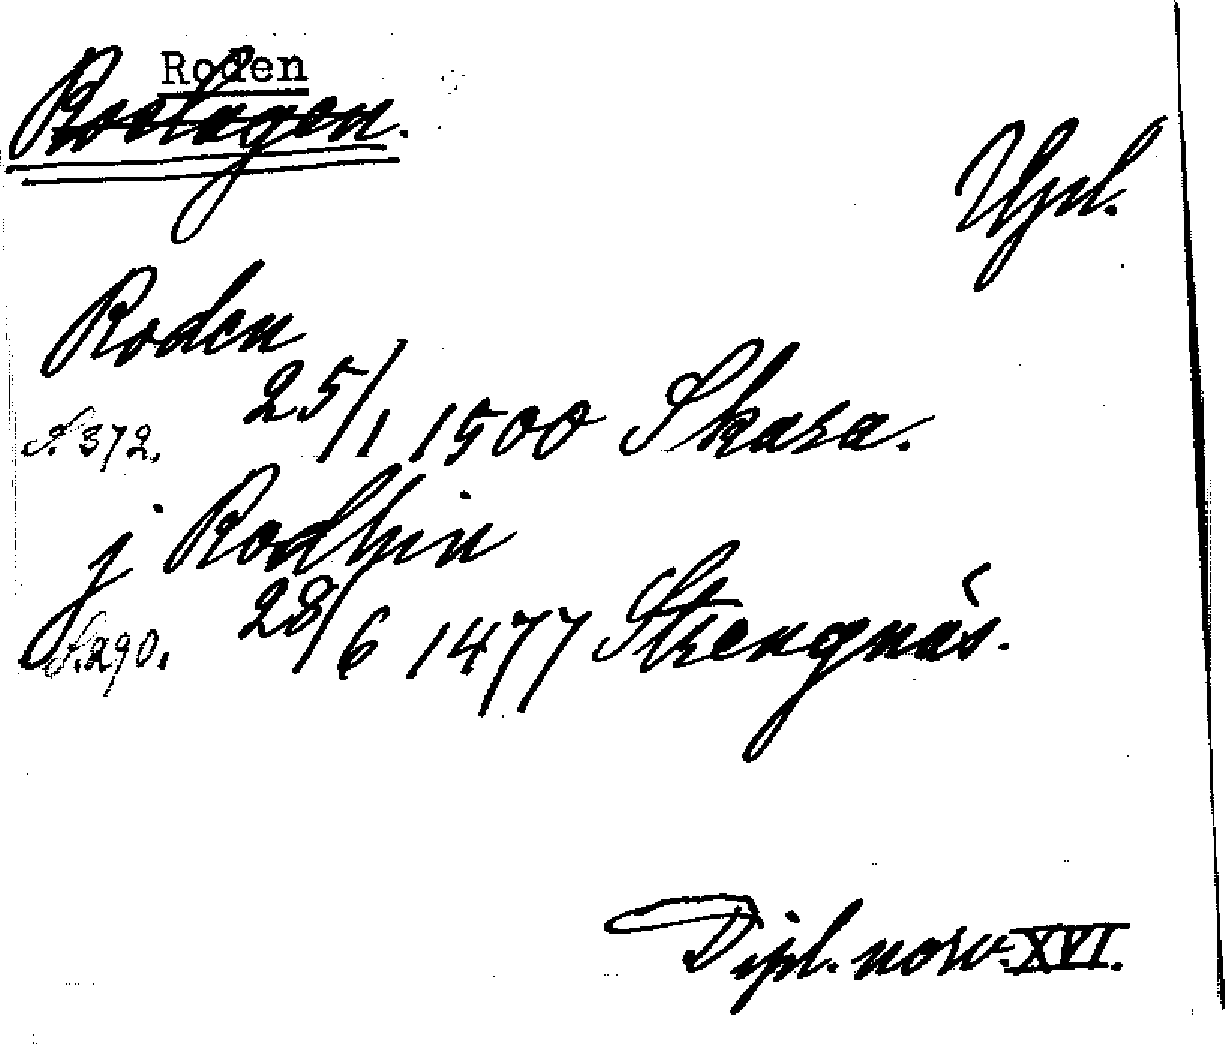 Roden
Roslagen.
Upl.
Roden
25/1 1500 Skara.
S. 372.
j Rodhin
28/6 1477 Strengnäs.
S. 290.
Dipl. norv. XVI.